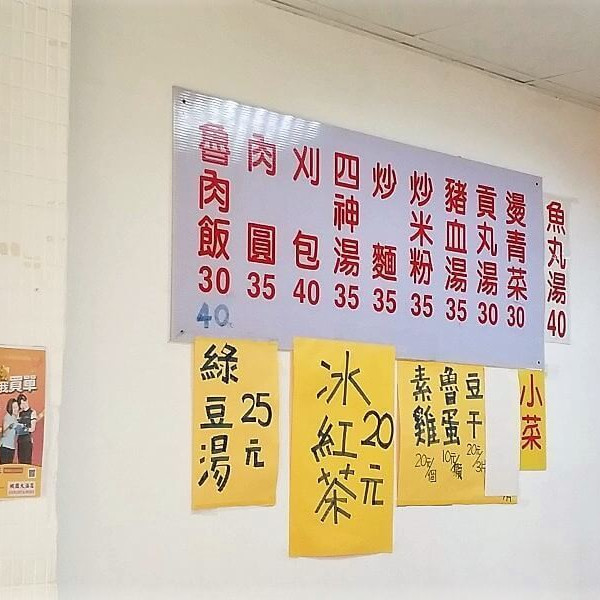 魯肉飯 30 40元
肉圓 35
刈包 40
四神湯 35
炒麵 35
炒米粉 35
豬血湯 35
貢丸湯 30
燙青菜 30
魚丸湯 40
綠豆湯 25元
冰紅茶 20元
素雞 20元/個
魯蛋 10元/顆
豆干 20元/3片
小菜
員單